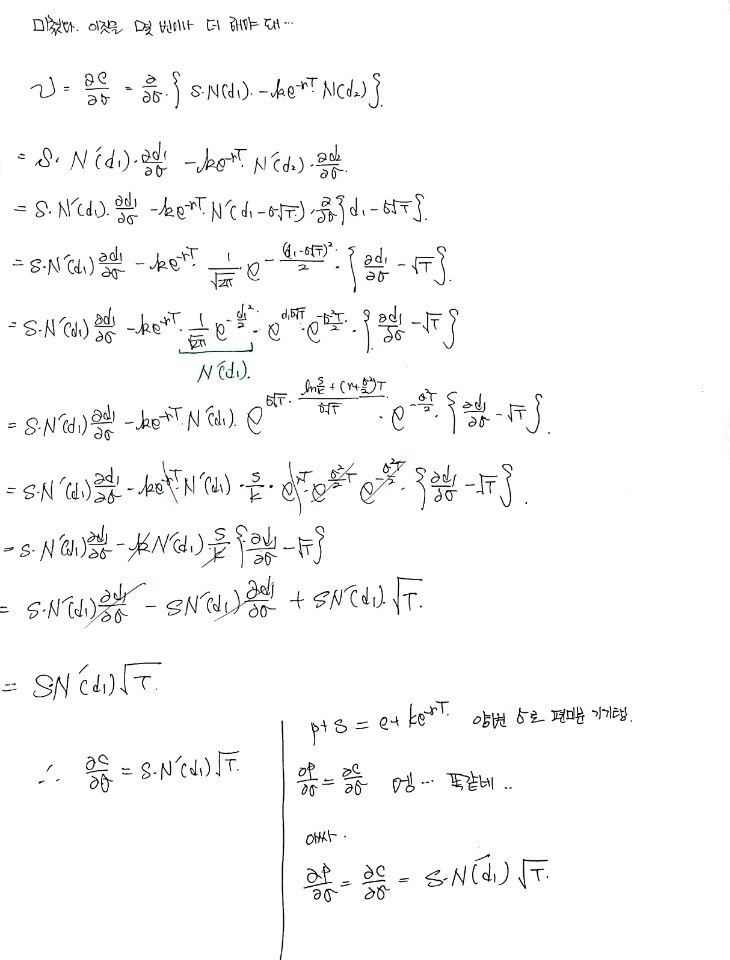 미쳤다. 이짓을 몇 번이나 더 해야 돼...
ν = ∂C/∂σ = ∂/∂σ · { S·N(d₁) - ke^(-rT) N(d₂) }.
= S· N'(d₁)·∂d₁/∂σ - ke^(-rT)· N'(d₂)·∂d₂/∂σ.
= S·N'(d₁)·∂d₁/∂σ - ke^(-rT)·N'(d₁-σ√T)·∂/∂σ{d₁-σ√T}.
= S·N'(d₁)∂d₁/∂σ - ke^(-rT)· 1/√2π e^(-(d₁-σ√T)²/2) · {∂d₁/∂σ - √T}.
= S·N'(d₁)∂d₁/∂σ - ke^(-rT)· 1/√2π e^(-d₁²/2) · e^(d₁σ√T)·e^(-σ²T/2) · {∂d₁/∂σ - √T}
N'(d₁).
= S·N'(d₁)∂d₁/∂σ - ke^(-rT)·N'(d₁)· e^(σ√T · (ln S/k + (r+σ²/2)T)/(σ√T)) · e^(-σ²T/2) · {∂d₁/∂σ - √T}.
= S·N'(d₁)∂d₁/∂σ - ke^(-rT)·N'(d₁)·S/k · e^(rT)·e^(σ²/2 T) e^(-σ²T/2) · {∂d₁/∂σ - √T}.
= S·N'(d₁)∂d₁/∂σ - kN'(d₁)·S/k {∂d₁/∂σ - √T}
= S·N'(d₁)∂d₁/∂σ - SN'(d₁)∂d₁/∂σ + SN'(d₁)·√T.
= SN'(d₁)√T.
∴ ∂C/∂σ = S·N'(d₁)√T.
p+S = c+ke^(-rT). 양변 σ로 편미분 갈겨.
∂P/∂σ = ∂C/∂σ 엥... 똑같네..
아싸.
∂P/∂σ = ∂C/∂σ = S·N'(d₁)√T.